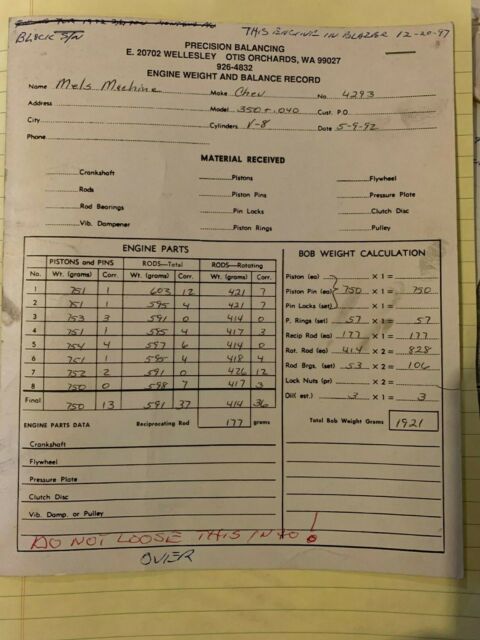 BLOCK S/N
THIS ENGINE IN BLAZER 12-20-97
PRECISION BALANCING
E. 20702 WELLESLEY OTIS ORCHARDS, WA 99027
926-4832
ENGINE WEIGHT AND BALANCE RECORD
Name Mels Machine Make Chev No. 4293
Address Model 350 + .040 Cust. P.O.
City Cylinders V-8 Date 5-9-92
Phone
MATERIAL RECEIVED
Crankshaft Pistons Flywheel
Rods Piston Pins Pressure Plate
Rod Bearings Pin Locks Clutch Disc
Vib. Dampener Piston Rings Pulley
ENGINE PARTS
PISTONS and PINS RODS—Total RODS—Rotating
No. Wt. (grams) Corr. Wt. (grams) Corr. Wt. (grams) Corr.
1 751 1 603 12 421 7
2 751 1 595 4 421 7
3 753 3 591 0 414 0
4 751 1 595 4 417 3
5 754 4 597 6 414 0
6 751 1 595 4 418 4
7 752 2 591 0 426 12
8 750 0 598 7 417 3
Final 750 13 591 37 414 36
ENGINE PARTS DATA Reciprocating Rod 177 grams
Crankshaft
Flywheel
Pressure Plate
Clutch Disc
Vib. Damp. or Pulley
BOB WEIGHT CALCULATION
Piston (ea) x 1 =
Piston Pin (ea) 750 x 1 = 750
Pin Locks (set) x 1 =
P. Rings (set) 57 x 1 = 57
Recip Rod (ea) 177 x 1 = 177
Rot. Rod (ea) 414 x 2 = 828
Rod Brgs. (set) 53 x 2 = 106
Lock Nuts (pr) x 2 =
Oil( est.) 3 x 1 = 3
Total Bob Weight Grams 1921
DO NOT LOOSE THIS INFO!
OVER